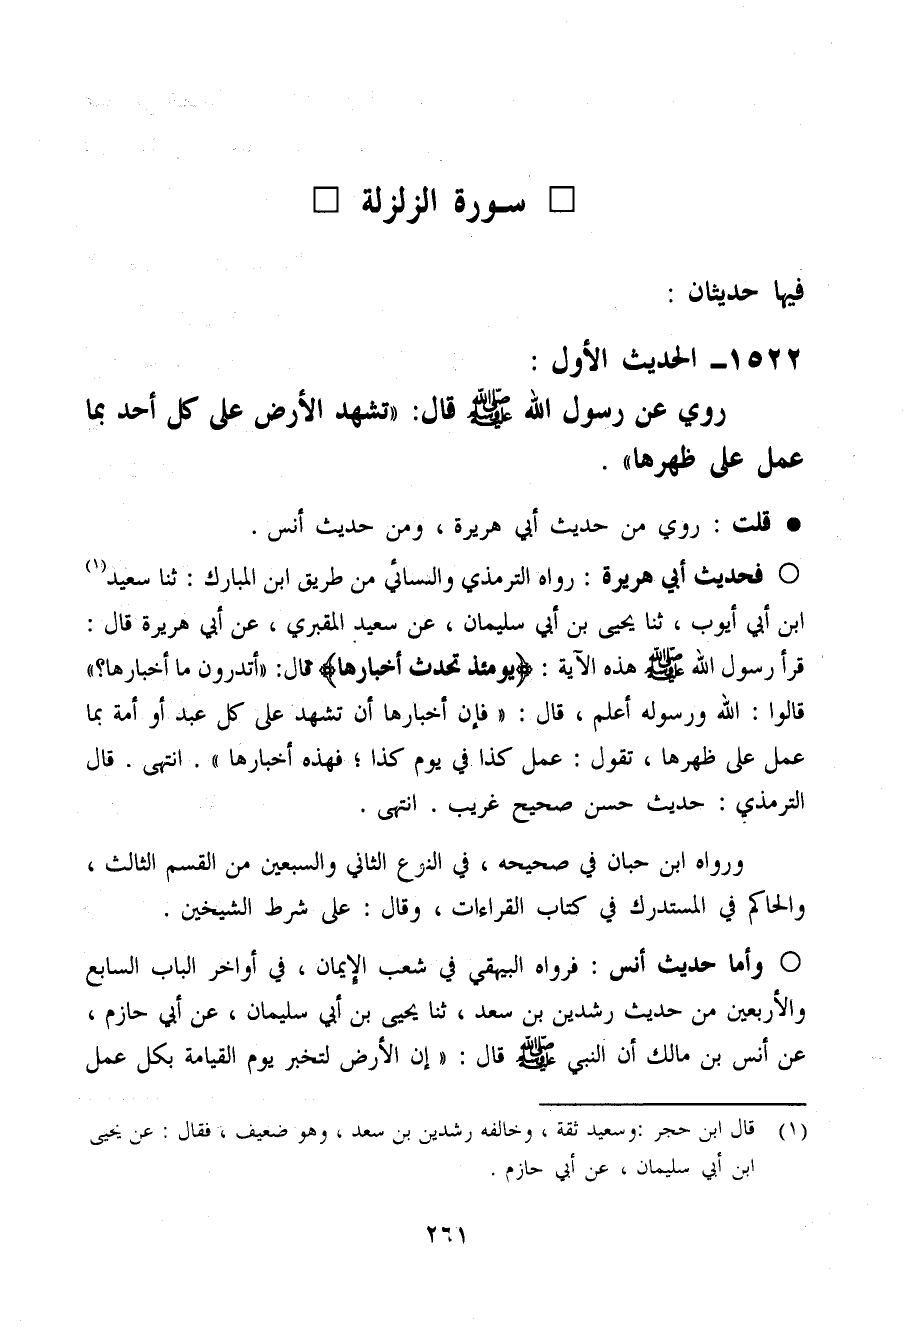 □ سورة الزلزلة □
فيها حديثان :
١٥٢٢ـ الحديث الأول :
روي عن رسول الله ﷺ قال: «تشهد الأرض على كل أحد بما
عمل على ظهرها» .
● قلت : روي من حديث أبي هريرة ، ومن حديث أنس .
○ فحديث أبي هريرة : رواه الترمذي والنسائي من طريق ابن المبارك : ثنا سعيد(١)
ابن أبي أيوب ، ثنا يحيى بن أبي سليمان ، عن سعيد المقبري ، عن أبي هريرة قال :
قرأ رسول الله ﷺ هذه الآية : ﴿يومئذ تحدث أخبارها﴾ قال: «أتدرون ما أخبارها؟»
قالوا : الله ورسوله أعلم ، قال : « فإن أخبارها أن تشهد على كل عبد أو أمة بما
عمل على ظهرها ، تقول : عمل كذا في يوم كذا ؛ فهذه أخبارها » . انتهى . قال
الترمذي : حديث حسن صحيح غريب . انتهى .
ورواه ابن حبان في صحيحه ، في النوع الثاني والسبعين من القسم الثالث ،
والحاكم في المستدرك في كتاب القراءات ، وقال : على شرط الشيخين .
○ وأما حديث أنس : فرواه البيهقي في شعب الإيمان ، في أواخر الباب السابع
والأربعين من حديث رشدين بن سعد ، ثنا يحيى بن أبي سليمان ، عن أبي حازم ،
عن أنس بن مالك أن النبي ﷺ قال : « إن الأرض لتخبر يوم القيامة بكل عمل
(١) قال ابن حجر :وسعيد ثقة ، وخالفه رشدين بن سعد ، وهو ضعيف ، فقال : عن يحيى
ابن أبي سليمان ، عن أبي حازم .
٢٦١